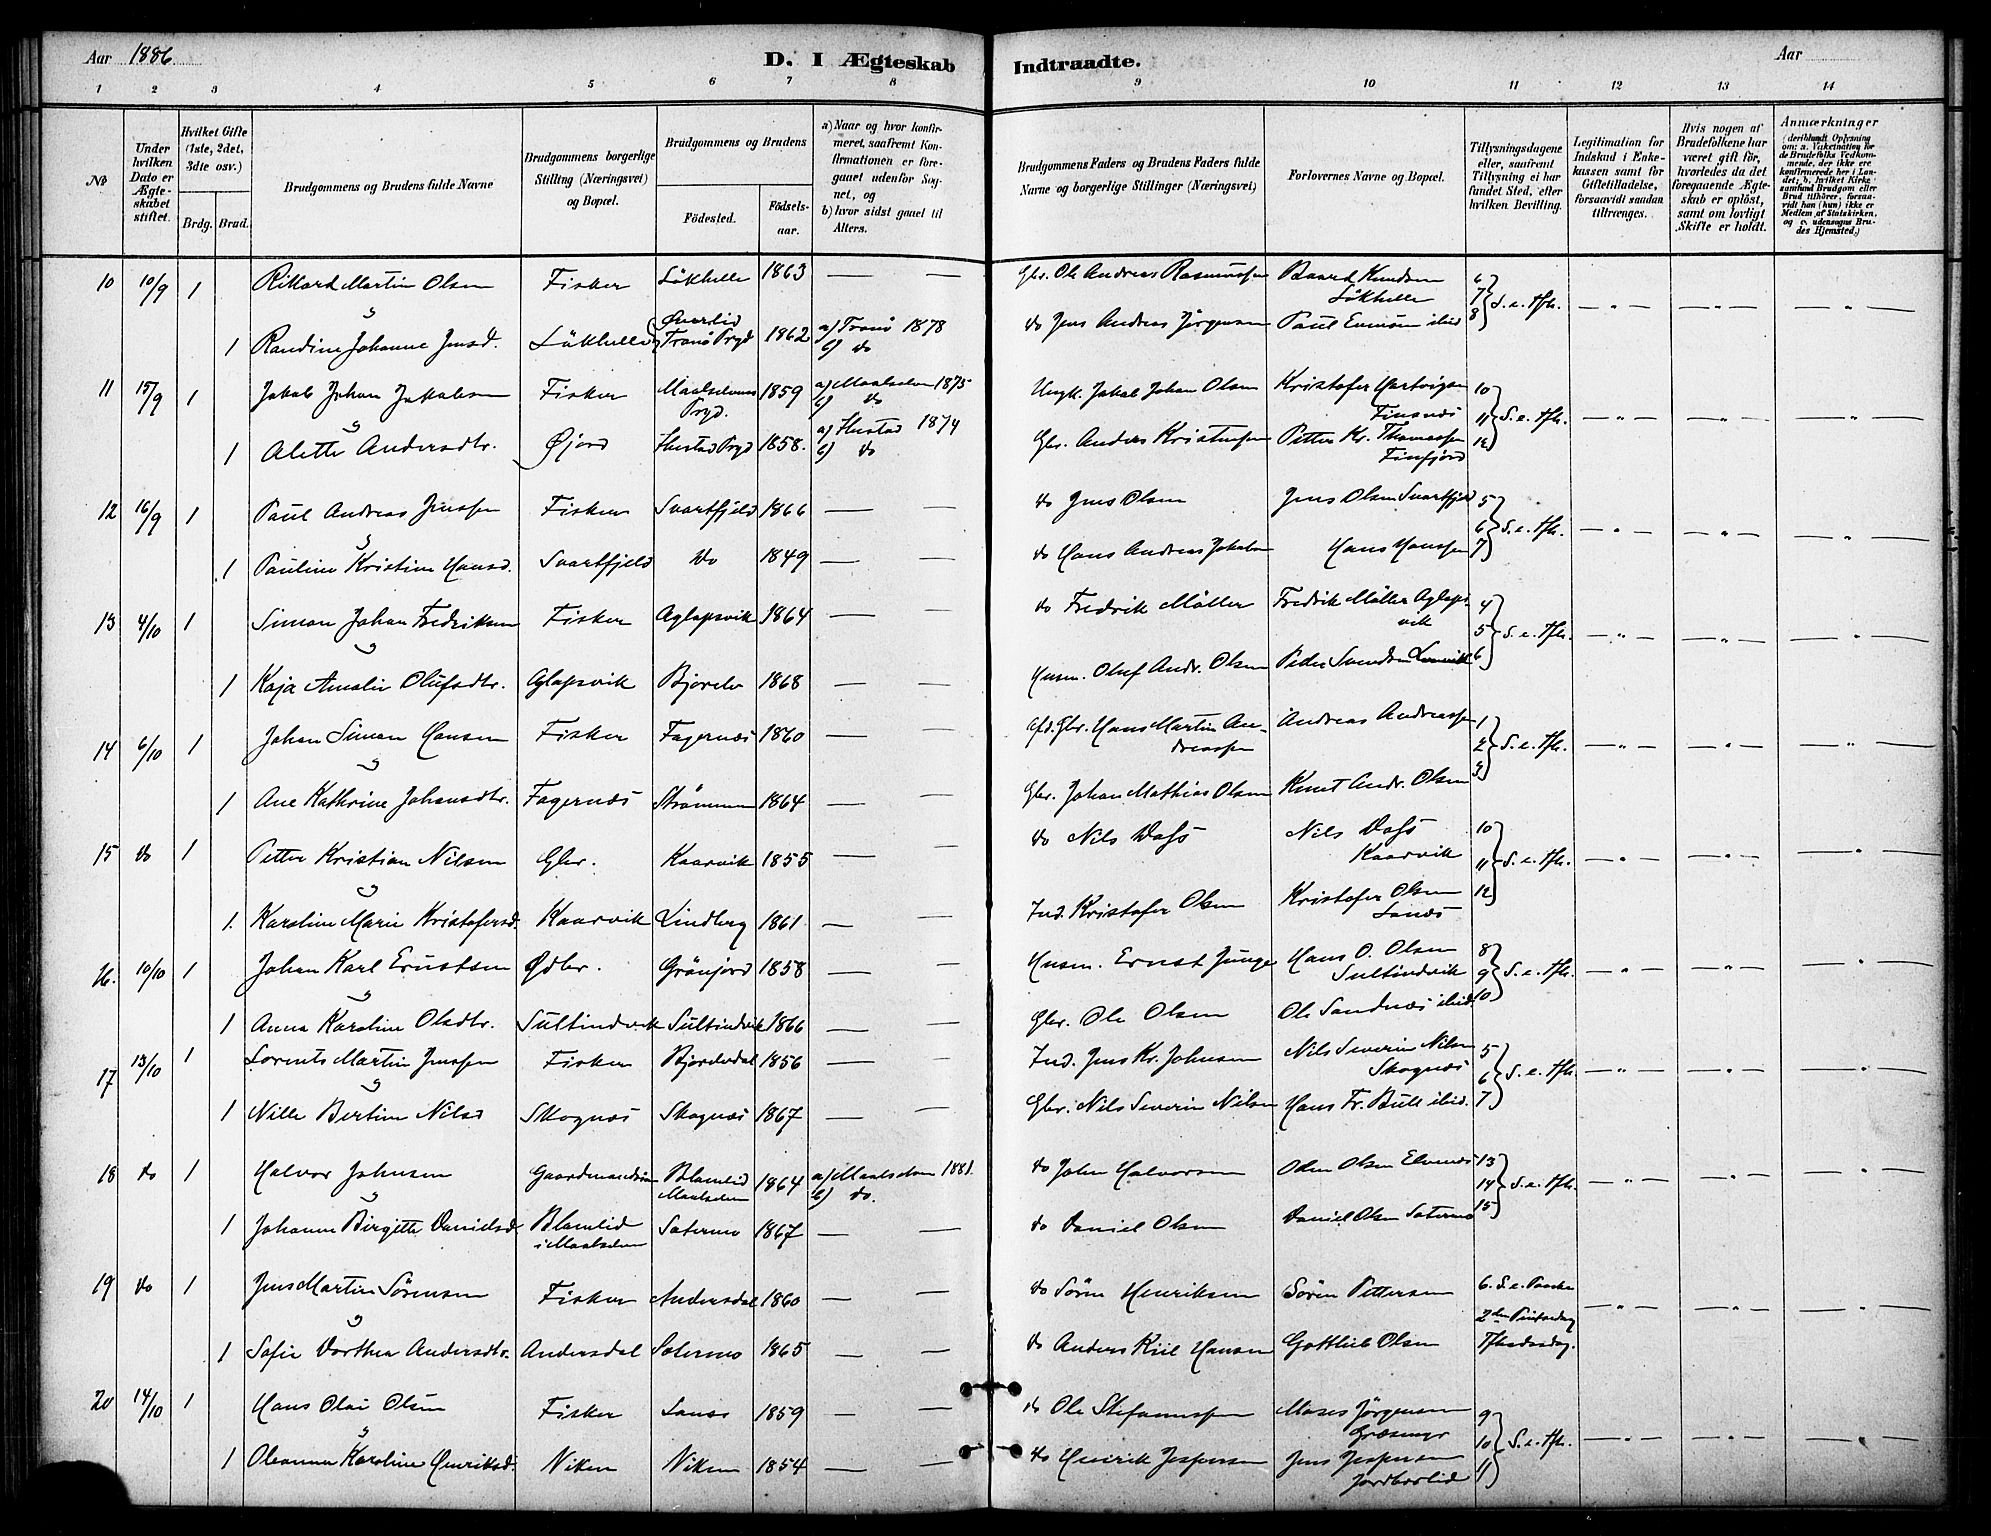 Aar 1886.
D. I Ægteskab Indtraadte.
Aar
1 2 3 4 5 6 7 8 9 10 11 12 13 14
No
Under hvilken Dato er Ægteskabet stiftet.
Hvilket Gifte (1ste, 2det, 3die osv.)
Brdg. Brud.
Brudgommens og Brudens fulde Navne
Brudgommens borgerlige Stilling (Næringsvei) og Bopæl.
Brudgommens og Brudens
Fødested.
Fødselsaar.
a) Naar og hvor konfirmeret, saafremt Konfirmationen er foregaaet udenfor Sognet, og
b) hvor sidst gaaet til Alters.
Brudgommens Faders og Brudens Faders fulde Navne og borgerlige Stillinger (Næringsvei)
Forlovernes Navne og Bopæl.
Tillysningsdagene eller, saafremt Tillysning ei har fundet Sted, efter hvilken Bevilling.
Legitimation for Indskud i Enkekassen samt for Giftetilladelse, forsaavidt saadan tiltrænges.
Hvis nogen af Brudefolkene har været gift før, hvorledes da det foregaaende Ægteskab er opløst, samt om lovligt Skifte er holdt.
Anmærkninger (deriblandt Oplysning om: a. Vakcination for de Brudefolks Vedkommende, der ikke ere konfirmerede her i Landet; b. hvilket Kirkesamfund Brudgom eller Brud tilhører, forsaavidt han (hun) ikke er Medlem af Statskirken, og c. udensogns Brudes Hjemsted.)
10 10/9 1 Rikard Martin Olsen Fisker Løkhelle 1863 — — Gbr. Ole Andreas Rasmussen Baard Knudsen Løkhelle 6 7 8 } S. e. Tfk.
1 Randine Johanne Jensd. Løkhelle Øverlid Tranø Prgd 1862 a) Tranø 1878 b) do do Jens Andreas Jørgensen Paul ibid
11 15/9 1 Jakob Johan Jakobsen Fisker Maalselvens Prgd. 1859 a) Maalselven 1875 b) do Ungk. Jakob Johan Olsen Kristofer Hartvigsen Finsnæs 10 11 12 } S. e. Tfk.
1 Alette Andersdtr. Øjord Hustad Prgd 1858. a) Hustad 1874 b) do Gbr. Anders Kristensen Petter Kr. Thomassen Finfjord
12 16/9 1 Paul Andreas Jenssen Fisker Svartfjeld 1866 — — do Jens Olsen Jens Olsen Svartfjeld 5 6 7 } S. e. Tfk.
1 Pauline Kristine Hansd. Svartfjeld do 1849 — — do Hans Andreas Jakobsen Hans Hanssen
13 4/10 1 Simon Johan Fredriksen Fisker Aglapsvik 1864 — — do Fredrik Møller Fredrik Møller Aglapsvik 4 5 6 } S. e. Tfk.
1 Kaja Amalie Olufsdtr. Aglapsvik Bjorelv 1868 — — Husm. Oluf Andr. Olsen Peder Svendsen
14 6/10 1 Johan Simon Hansen Fisker Fagernæs 1860 — — Afd. Gbr. Hans Martin Andreassen Andreas Andreassen 1 2 3 } S. e. Tfk.
1 Ane Kathrine Johansdtr. Fagernæs Strømmen 1864 — — Gbr. Johan Mathias Olsen Knut Andr. Olsen
15 do 1 Petter Kristian Nilsen Gbr. Kaarvik 1855 — — do Nils Dass Nils Dass Kaarvik 10 11 12 } S. e. Tfk.
1. Karoline Marie Kristofersd. Kaarvik Lindberg 1861 — — Ind. Kristofer Olsen Kristofer Olsen Lanæs
16. 10/10 1 Johan Karl Ernstsen Ødbr. Grønjord 1858 — — Husm. Ernst Junge Hans O. Olsen Sultindvik 8 9 10 } S. e. Tfk.
1 Anna Karoline Olsdtr. Sultindvik Sultindvik 1866 — — Gbr. Ole Olsen Ole Sandnæs ibid.
17 13/10 1 Lorents Martin Jenssen Fisker Bjordedal 1856 — — Ind. Jens Kr. Johnsen Nils Severin Nilsen Skognæs 5 6 7 } S. e. Tfk.
1 Nille Bertine Nilsd Skognæs Skognæs 1867 — — Gbr. Nils Severin Nilsen Hans Fr. Bull ibid.
18 do 1 Halvor Johnsen Gaardmandsøn Blamlid Maalselven 1864 a) Maalselven 1881. b) do. do John Halvorsen Oden Olsen Elvenæs 13 14 15 } S. e. Tfk.
1 Johanna Birgitte Danielsd. Blamlid i Maalselven Sætermo 1867 — — do Daniel Olsen Daniel Olsen Sætermo
19 do 1 Jens Martin Sørensen Fisker Andersdal 1860 — — do Søren Henriksen Søren Pettersen 6. S. e. Paaske 2den Pintsedag Tfkedasdag.
1 Sofie Dorthea Andersdtr. Andersdal Sætermo 1865 — — do Anders Kiil Hansen Gottlieb Olsen
20 14/10 1 Hans Olai Olsen Fisker Lanæs 1859 — — do Ole Stefanussen Moses Jørgensen Græsmyr 9 10 11 } S. e. Tfk.
1 Oleanna Karoline Henriksd. Niken Niken 1854 — — do Henrik Jespersen Jens Jespersen Jordbærlid